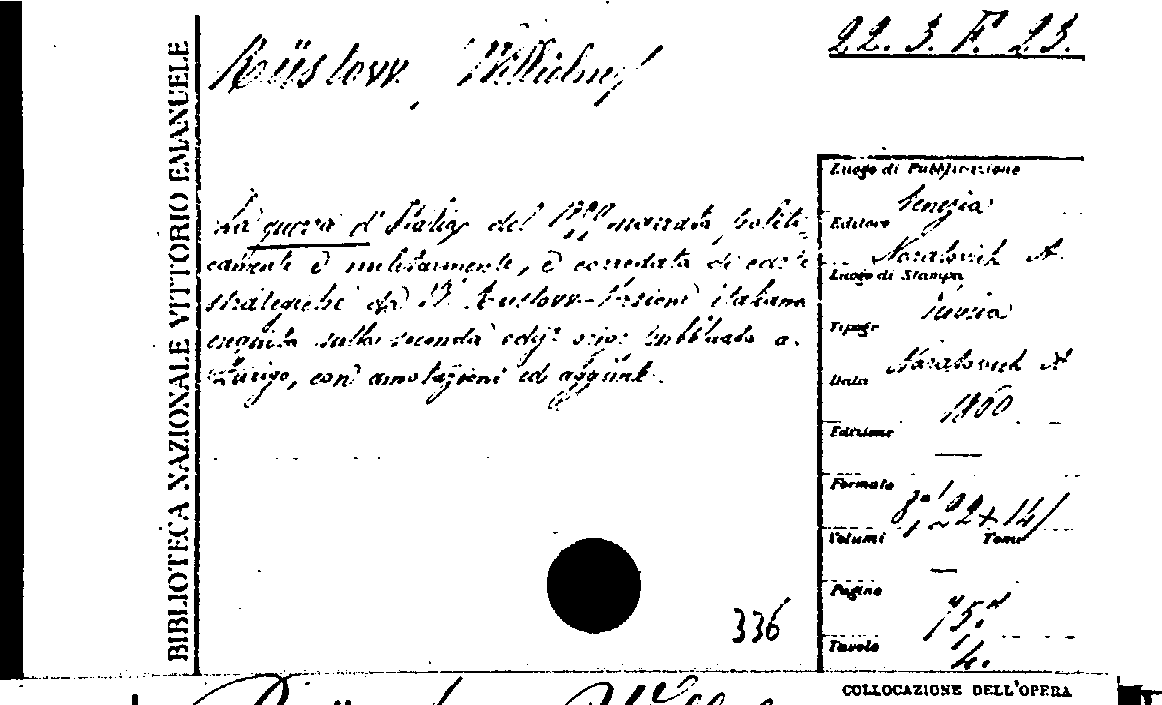 22. 3. F. 23.
Rüstow, Wilhelm
BIBLIOTECA NAZIONALE VITTORIO EMANUELE
La guerra d'Italia del 1859 narrata politi-
camente e militarmente, e corredata di carte
strategiche da W. Rustow - Versione italiana
eseguita sulla seconda ediz. orig. pubblicata a
Zurigo, con annotazioni ed aggiunte.
336
Luogo di Pubblicazione
Venezia
Editore
Naratovich A.
Luogo di Stampa
Venezia
Tipogr.
Naratovich A
Data
1860
Edizione
—
Formato
8°, 22 x 14
Volumi Tomi
—
Pagine
Tavole
4.
COLLOCAZIONE DELL'OPERA